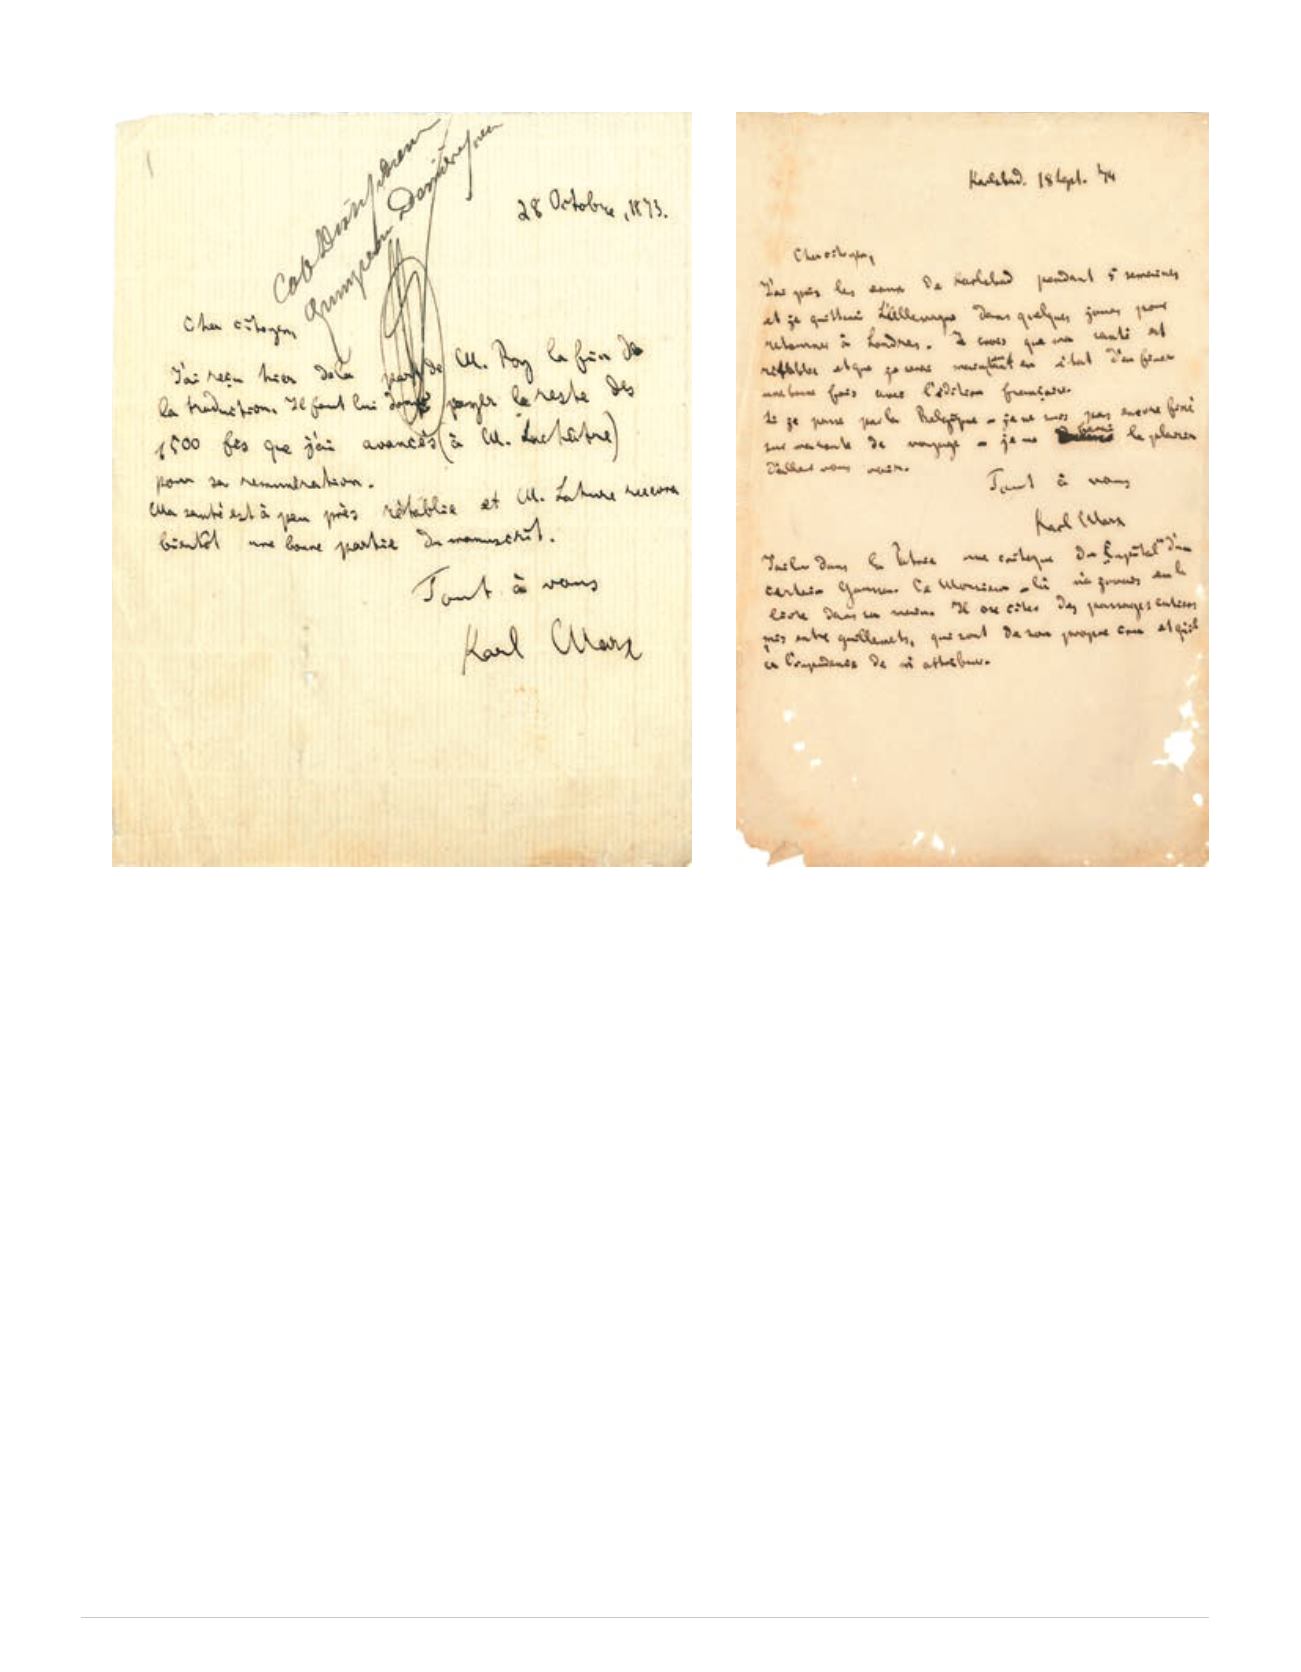 28 Octobre, 1873.
Cher citoyen,
J'ai reçu hier de la part de M. Roy la fin de
la traduction. Il faut lui donc payer le reste des
1500 fcs que j'ai avancés (à M. Lachâtre)
pour sa remunération.
Ma santé est à peu près rétablie et M. Lahure recevra
bientôt une bonne partie du manuscrit.
Tout à vous
Karl Marx
Karlsbad. 18 Sept. 74
Cher citoyen,
J'ai pris les eaux de Karlsbad pendant 5 semaines
et je quitterai l'Allemagne dans quelques jours pour
retourner à Londres. Je crois que ma santé est
rétablie et que je serai maintenant en état d'en finir
une bonne fois avec l'édition française.
Si je passe par la Belgique – je ne suis pas encore fixé
sur ma route de voyage – je me le plaisir
d'aller vous voir.
Tout à vous
Karl Marx
J'ai lu dans la une critique du "Capital" d'un
certain Ce Monsieur-là n'a jamais eu le
livre dans sa main. Il ose citer des passages entiers
mis entre guillemets, qui sont de son propre cru et qu'il
a l'impudence de m'attribuer.